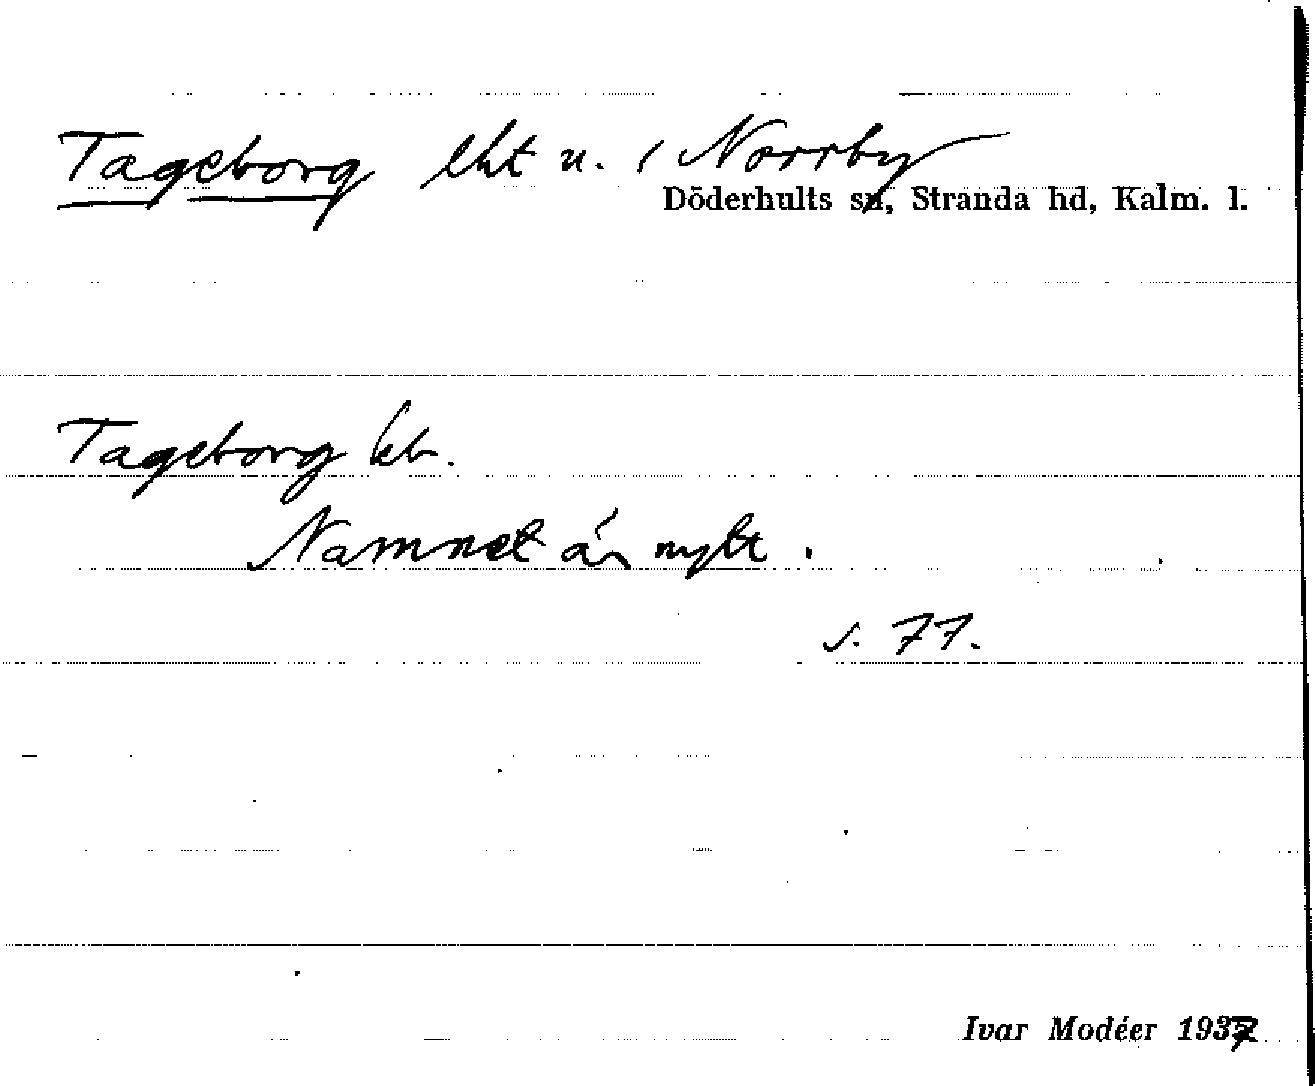 Tageborg lht u. / Norrby
Döderhults sn, Stranda hd, Kalm. l.
Tageborg kb.
Namnet är nytt.
s. 77.
Ivar Modéer 1937